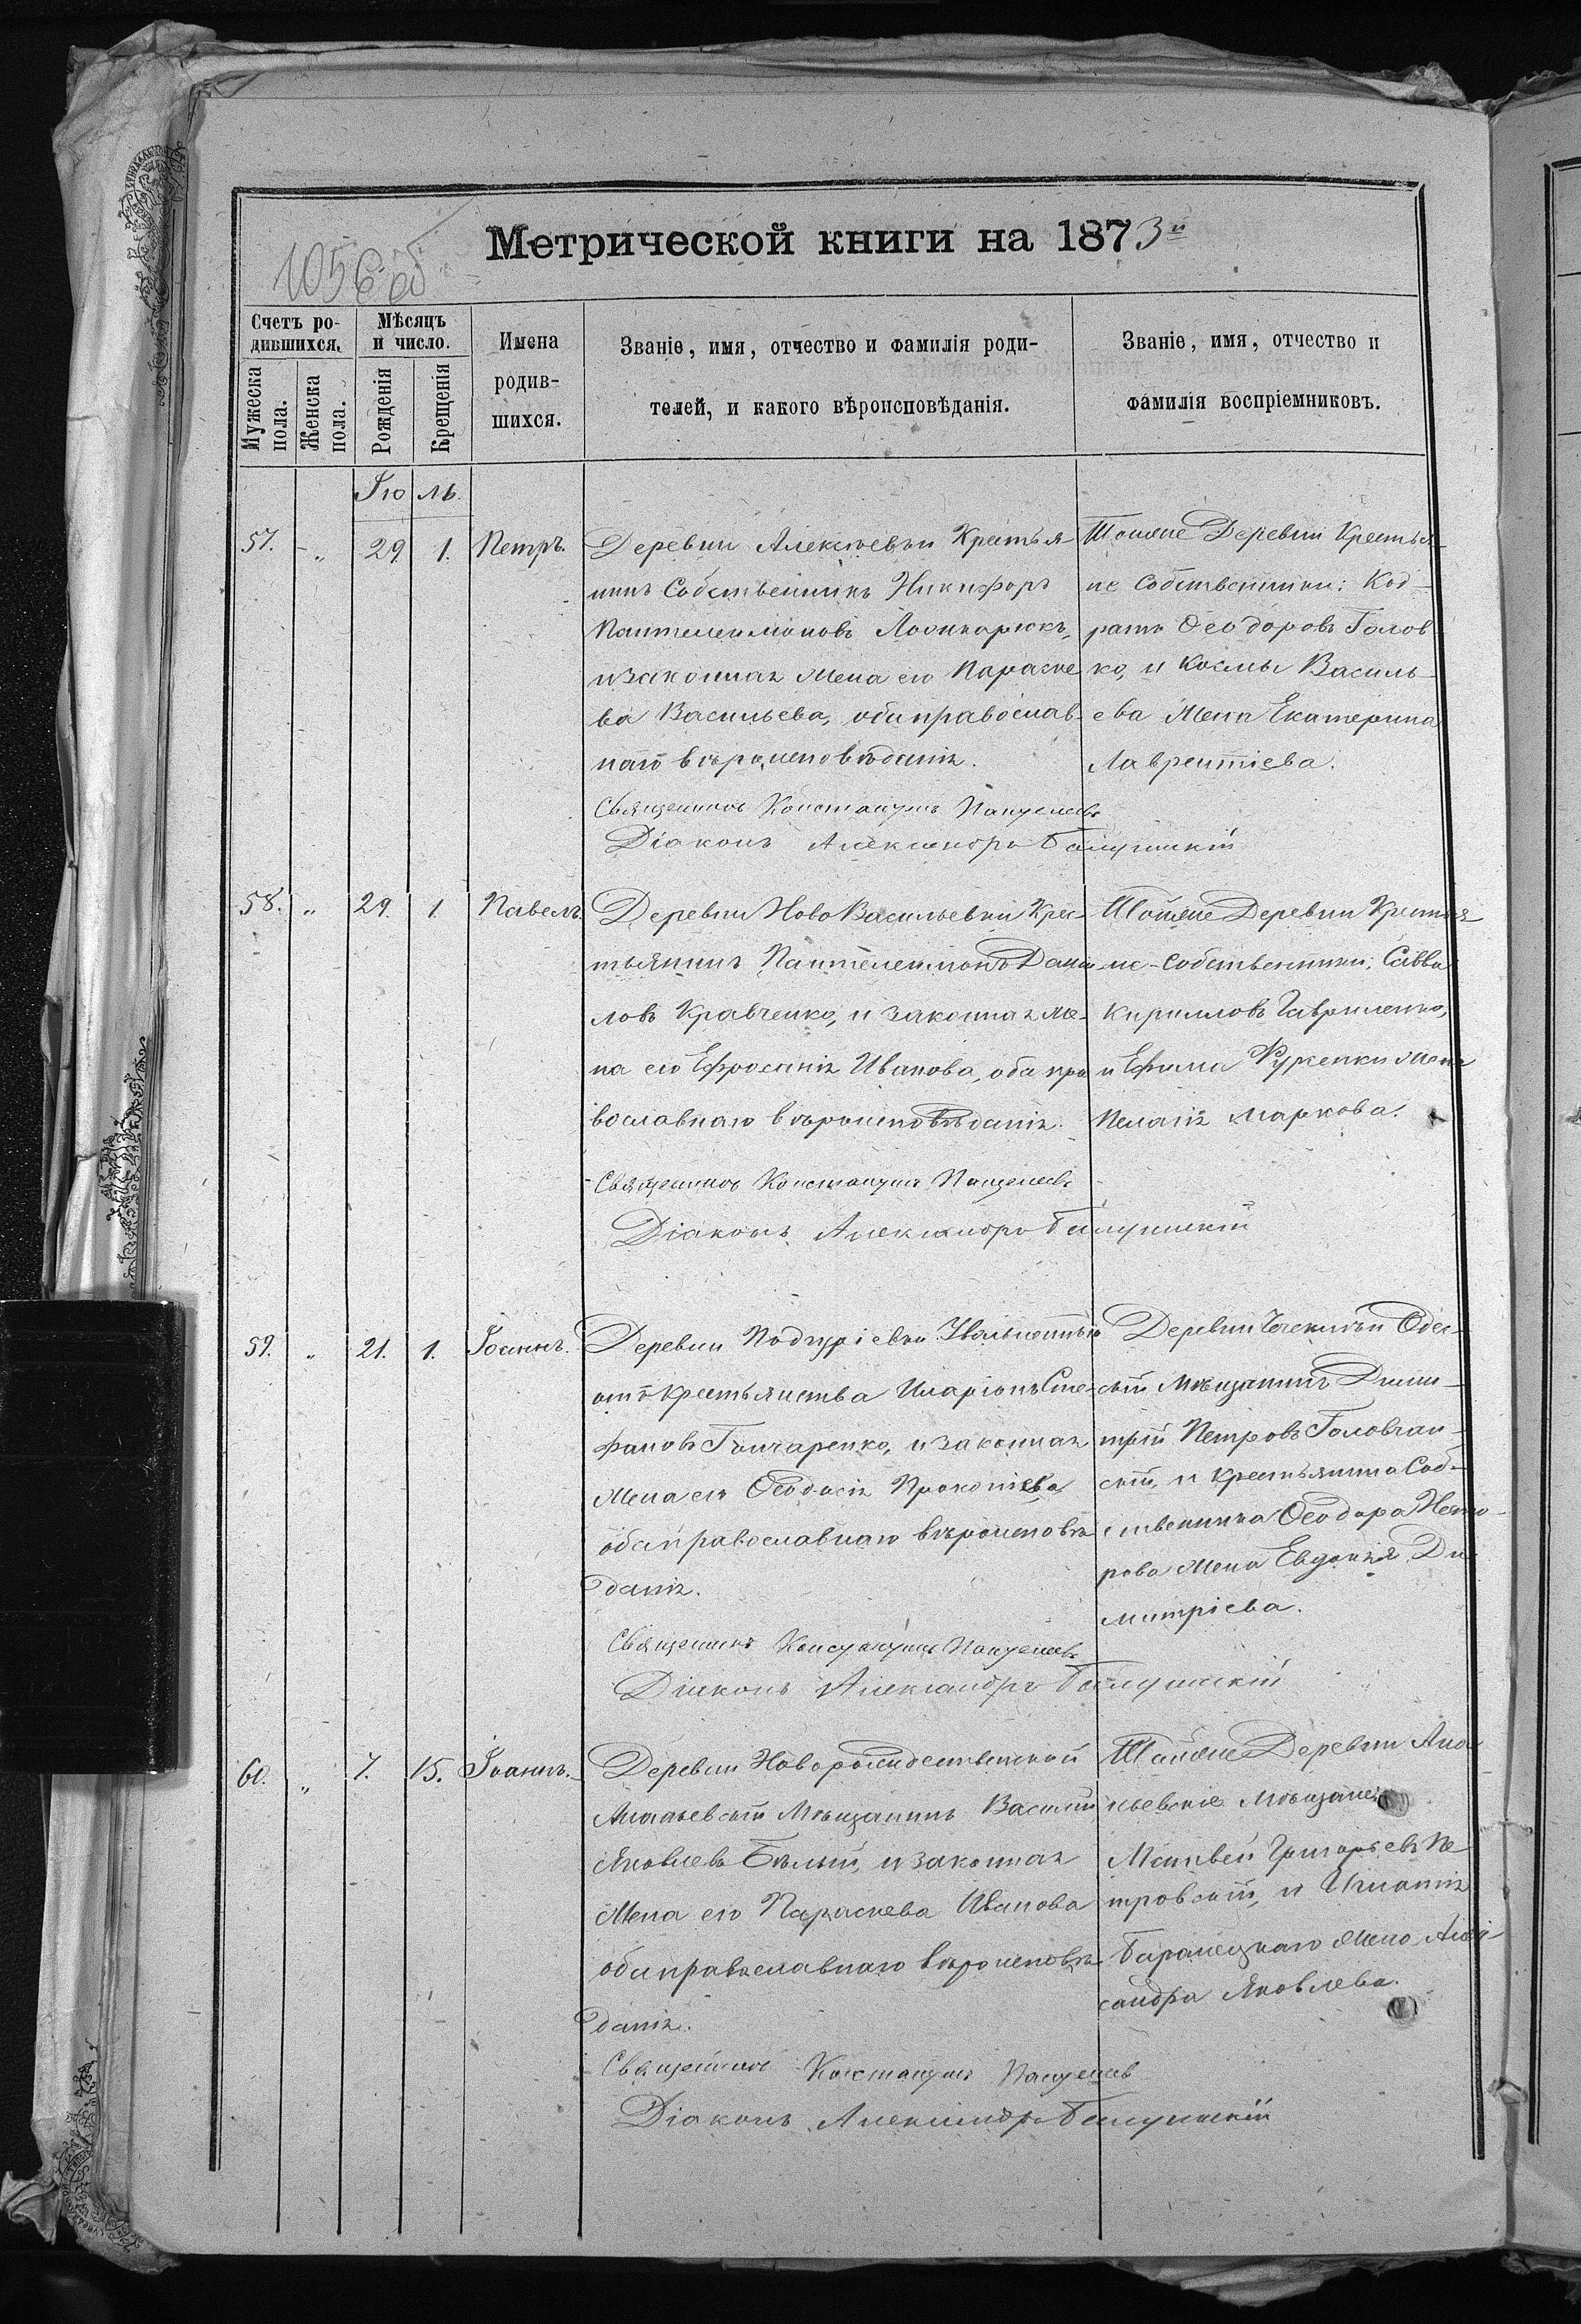 Метрической книги на 1873й
1056 об
Счетъ ро-
дившихся.
Мѣсяцъ
и число.
Имена
родив-
шихся.
Званіе, имя, отчество и фамилія роди-
телей, и какого вѣроисповѣданія.
Званіе, имя, отчество и
фамилія воспріемниковъ.
Мужеска
пола.
Женска
пола.
Рожденія
Крещенія
Іюль.
57. " 29 1. Петръ.
Деревни Алексѣевки Крестья-
нинъ Собственникъ Никифоръ
Пантелеимоновъ
и законная жена его Параске
ва Васильева, оба православ-
наго вѣроисповѣданія.
Священникъ Константинъ
Діаконъ Александръ
Тойже Деревни Крестья-
не Собственники: Код-
ратъ Ѳеодоровъ Голов
ко, и Космы Василь-
ева жена Екатерина
Лаврентіева.
58. " 29. 1. Павелъ.
Деревни НовоВасильевки Крес-
тьянинъ Пантелеимонъ Дани
ловъ Кравченко, и законная же-
на его Ефросинія Иванова, оба пра
вославнаго вѣроисповѣданія.
Священникъ Константинъ
Діаконъ Александръ
Тойже Деревни Крестья
не-Собственники: Савва
Кирилловъ Гавриленко,
и Ефима жена
Пелагія Маркова.
59. " 21. 1. Іоаннъ.
Деревни Уволенный
отъ крестьянства Иларіонъ Сте-
фановъ Гончаренко, и законная
жена его Ѳеодосія Прокопіева
оба православнаго вѣроисповѣ
данія.
Священникъ Константинъ
Діаконъ Александръ
Деревни Одес-
скій Мѣщанинъ Дими-
трій Петровъ Головчан-
скій, и крестьянина Соб-
ственника Ѳеодора
жена Евдокія Ди
митріева.
60. " 7. 15. Іоаннъ.
Деревни Новорождественской
Ананьевскій Мѣщанинъ Василій
Яковлевъ Бѣлый, и законная
жена его Параскева Иванова
оба православнаго вѣроисповѣ
данія.
Священникъ Константинъ
Діаконъ Александръ
Тойже Деревни Ана
ньевскіе Мѣщане:
Матвей Григорьевъ Пе
тровскій, и Игнатія
Баранецкаго жена Алек
сандра Яковлева.